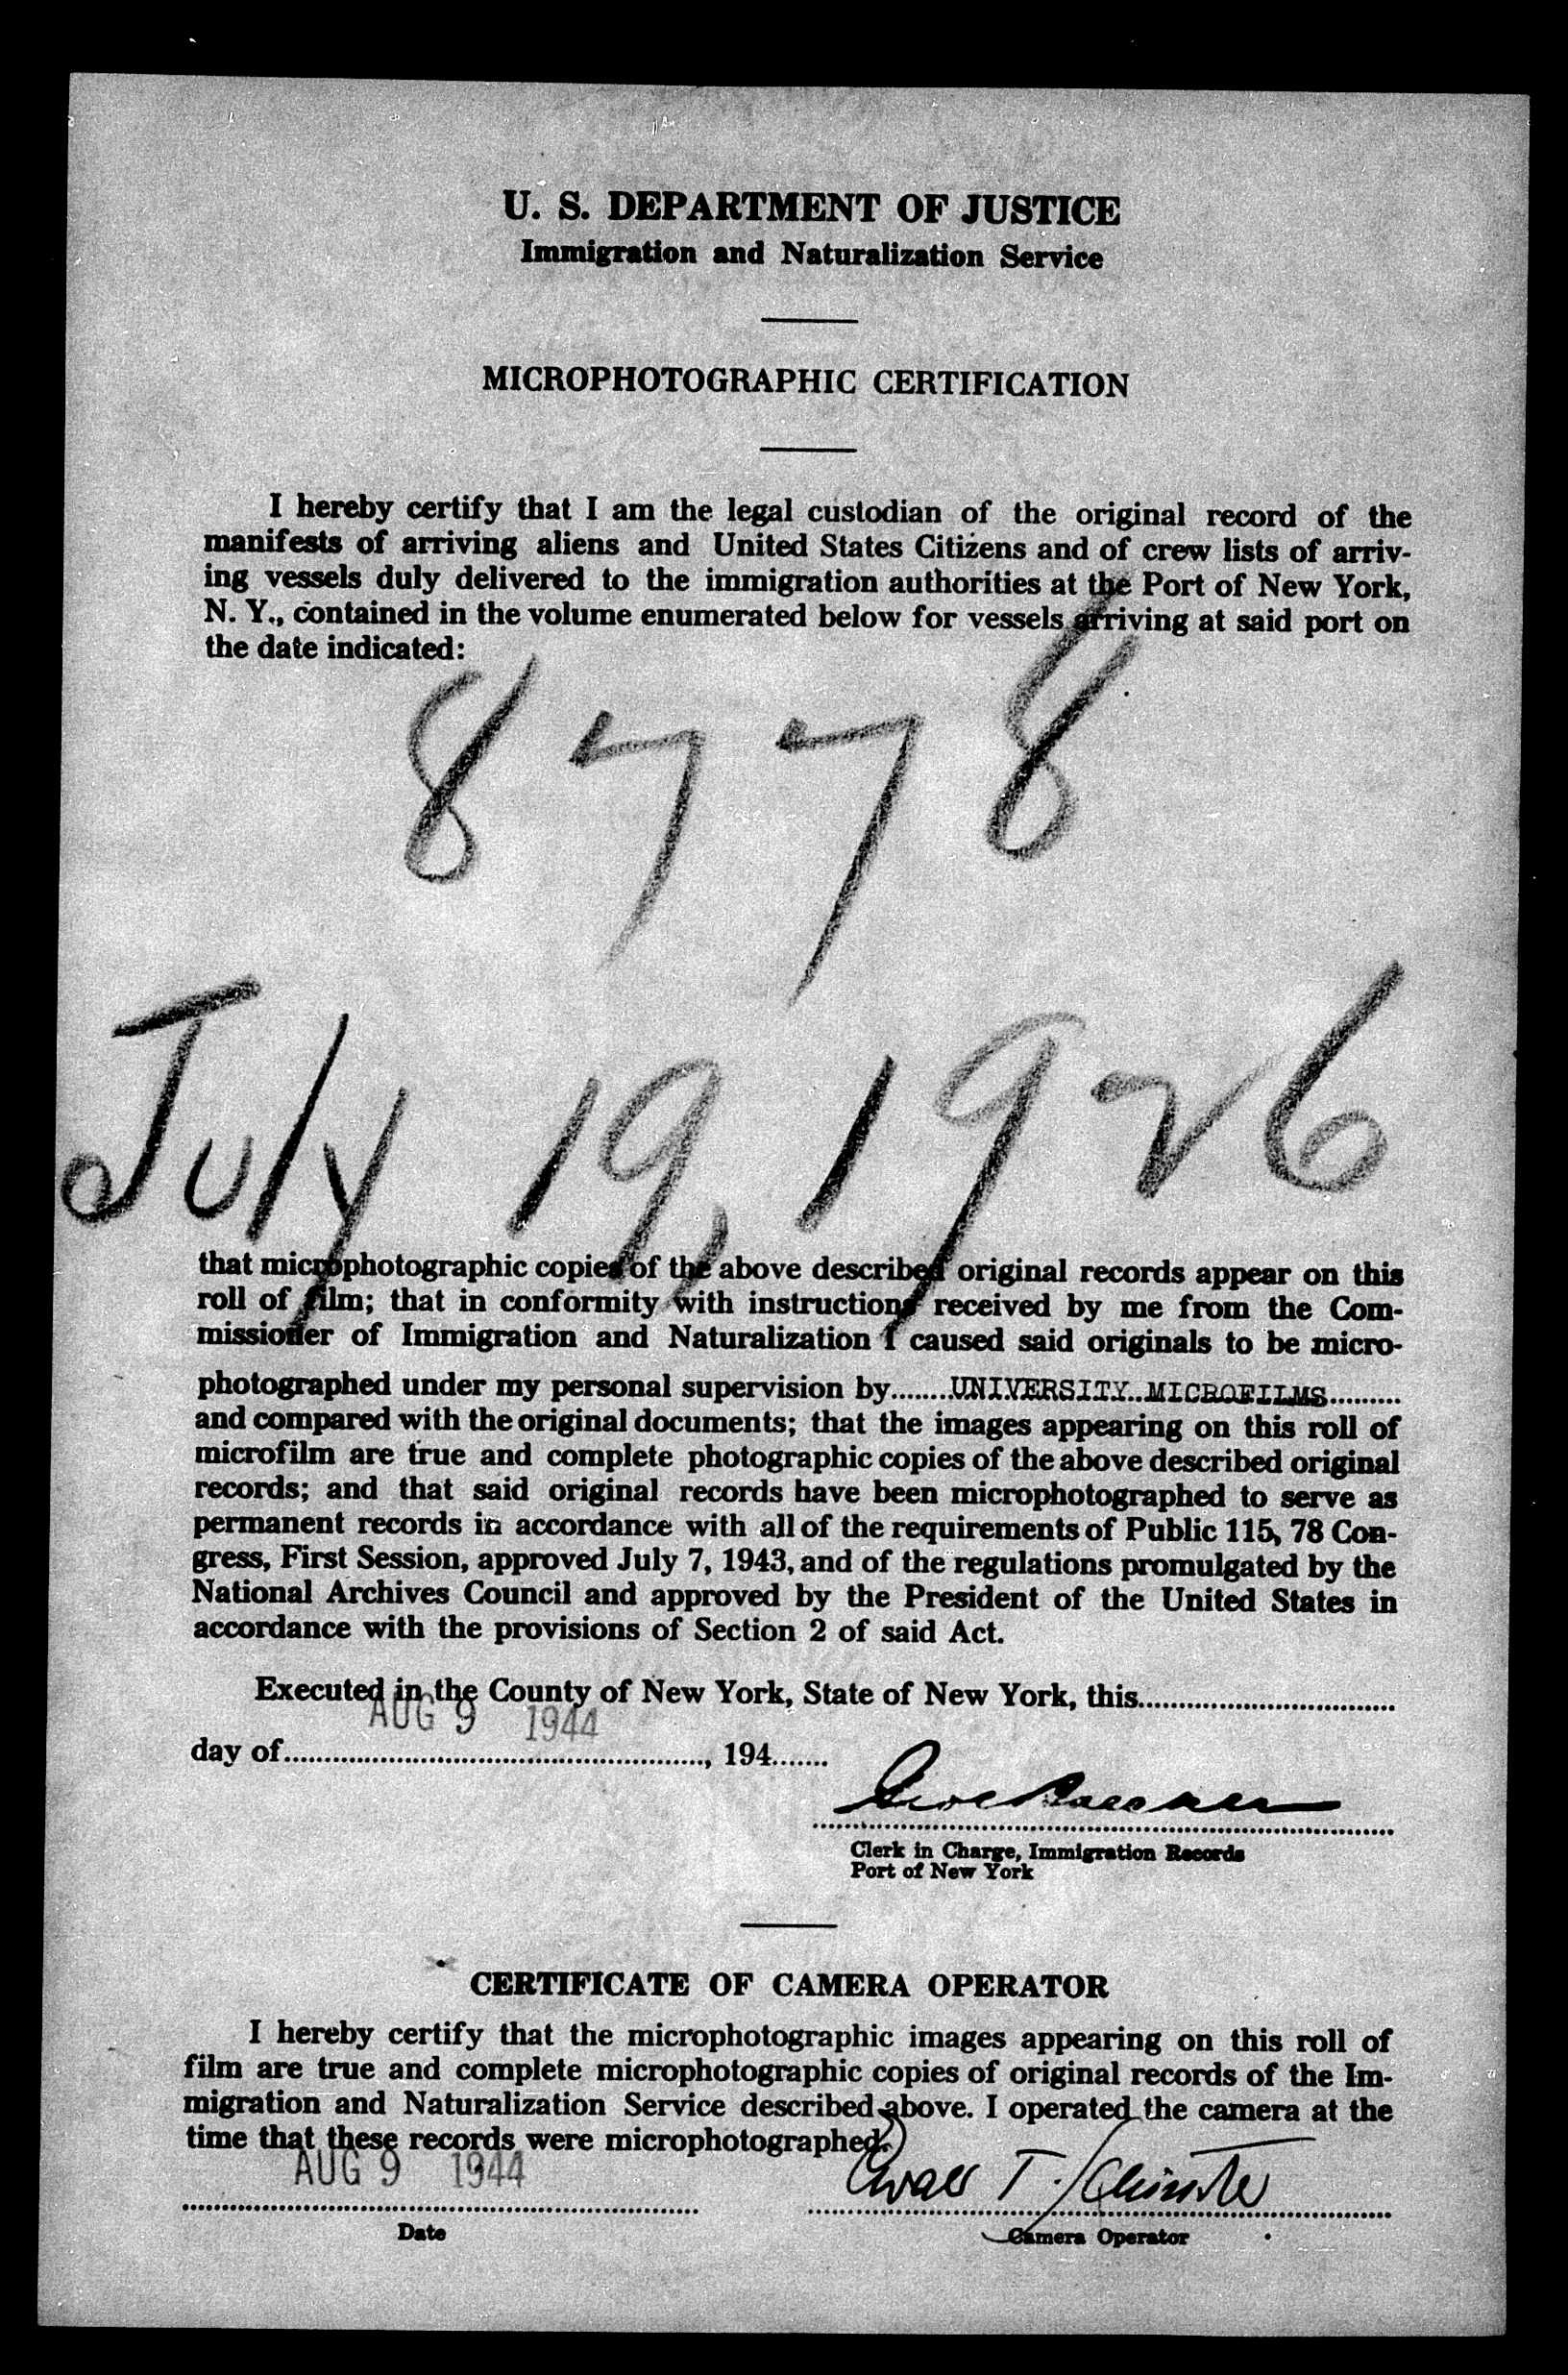 U. S. DEPARTMENT OF JUSTICE
Immigration and Naturalization Service
MICROPHOTOGRAPHIC CERTIFICATION
I hereby certify that I am the legal custodian of the original record of the
manifests of arriving aliens and United States Citizens and of crew lists of arriv-
ing vessels duly delivered to the immigration authorities at the Port of New York,
N. Y., contained in the volume enumerated below for vessels arriving at said port on
the date indicated:
8778
July 19, 1926
that microphotographic copies of the above described original records appear on this
roll of film; that in conformity with instructions received by me from the Com-
missioner of Immigration and Naturalization I caused said originals to be micro-
photographed under my personal supervision by........UNIVERSITY MICROFILMS.........
and compared with the original documents; that the images appearing on this roll of
microfilm are true and complete photographic copies of the above described original
records; and that said original records have been microphotographed to serve as
permanent records in accordance with all of the requirements of Public 115, 78 Con-
gress, First Session, approved July 7, 1943, and of the regulations promulgated by the
National Archives Council and approved by the President of the United States in
accordance with the provisions of Section 2 of said Act.
Executed in the County of New York, State of New York, this................................
AUG 9 1944
day of....................................................., 194.......
Clerk in Charge, Immigration Records
Port of New York
CERTIFICATE OF CAMERA OPERATOR
I hereby certify that the microphotographic images appearing on this roll of
film are true and complete microphotographic copies of original records of the Im-
migration and Naturalization Service described above. I operated the camera at the
time that these records were microphotographed.
AUG 9 1944
T.
Date
Camera Operator